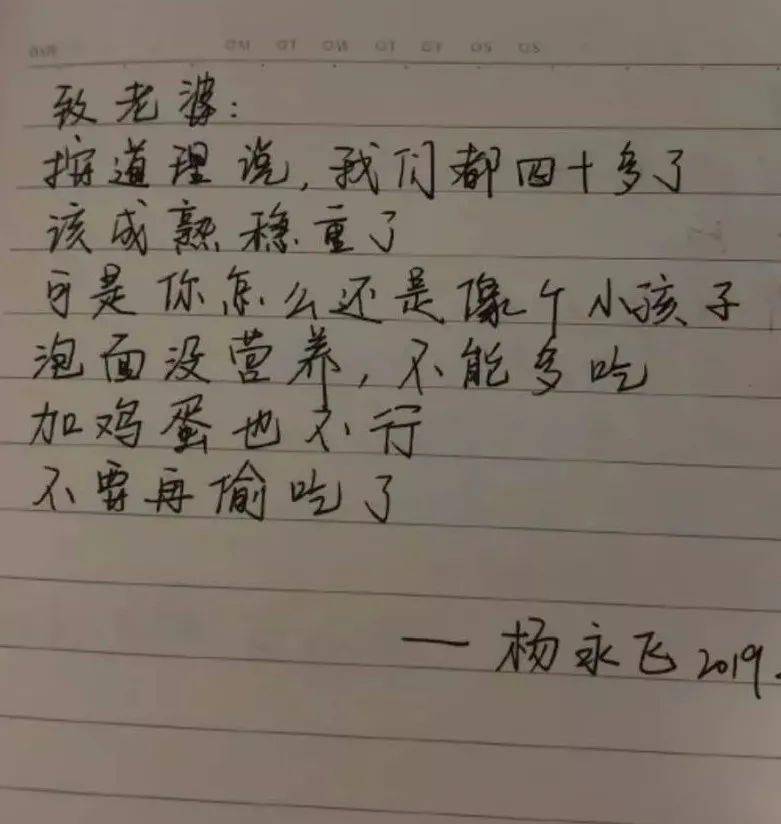 致老婆：
按道理说，我们都四十多了
该成熟稳重了
可是你怎么还是像个小孩子
泡面没营养，不能多吃
加鸡蛋也不行
不要再偷吃了
— 杨永飞 2019.